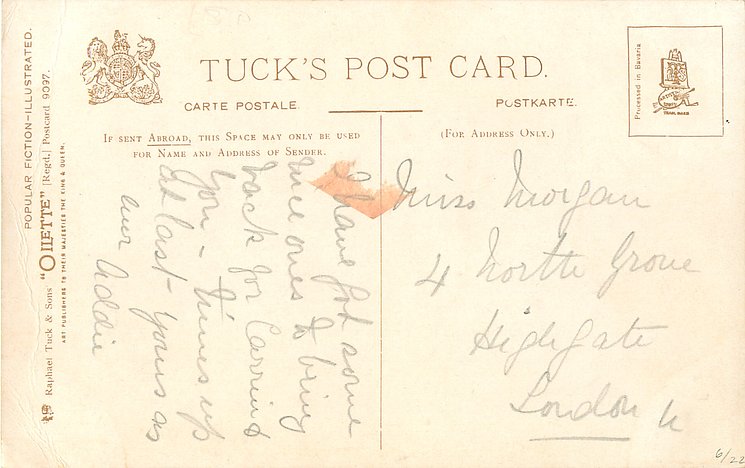 TUCK'S POST CARD.
CARTE POSTALE.
POSTKARTE.
IF SENT ABROAD, THIS SPACE MAY ONLY BE USED
FOR NAME AND ADDRESS OF SENDER.
(FOR ADDRESS ONLY.)
Processed in Bavaria
TRADE MARK
POPULAR FICTION—ILLUSTRATED.
Raphael Tuck & Sons' "OILETTE" [Regd.] Postcard 9097.
ART PUBLISHERS TO THEIR MAJESTIES THE KING & QUEEN.
I have got some
nice ones to bring
back for Carrie &
you - Times up
at last - yours as
ever Addie
Miss Morgan
4 North Grove
Highgate
London N
6/22